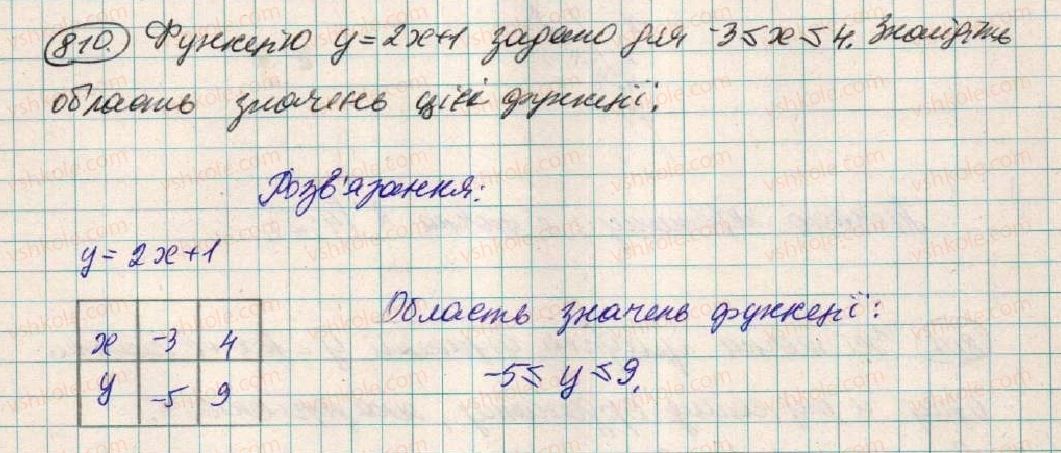 810. Функцію y = 2x+1 задано для -3 ≤ x ≤ 4. Знайдіть
область значень цієї функції.
Розв'язання:
y = 2x+1
Область значень функції:
x -3 4
-5 ≤ y ≤ 9.
y -5 9